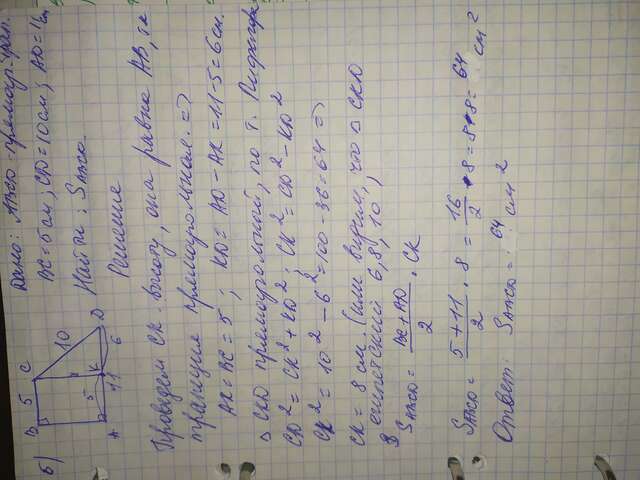 б)
B 5 C
10
5 K 6 D
A 11
Дано: ABCD - прямоуг. трап.
BC = 5 см, CD = 10 см, AD = 11 см
Найти: SABCD
Решение
Проведем CK - высоту, она равна AB, т.к
трапеция прямоугольная. =>
AK = BC = 5; KD = AD - AK = 11 - 5 = 6 см.
△ CKD прямоугольный, по т. Пифагора
CD² = CK² + KD²; CK² = CD² - KD²
CK² = 10² - 6² = 100 - 36 = 64 =>
CK = 8 см (или видим, что △ CKD
египетский 6, 8, 10)
SABCD = BC + AD / 2 · CK
SABCD = 5 + 11 / 2 · 8 = 16 / 2 · 8 = 8 · 8 = 64 см²
Ответ: SABCD = 64 см²